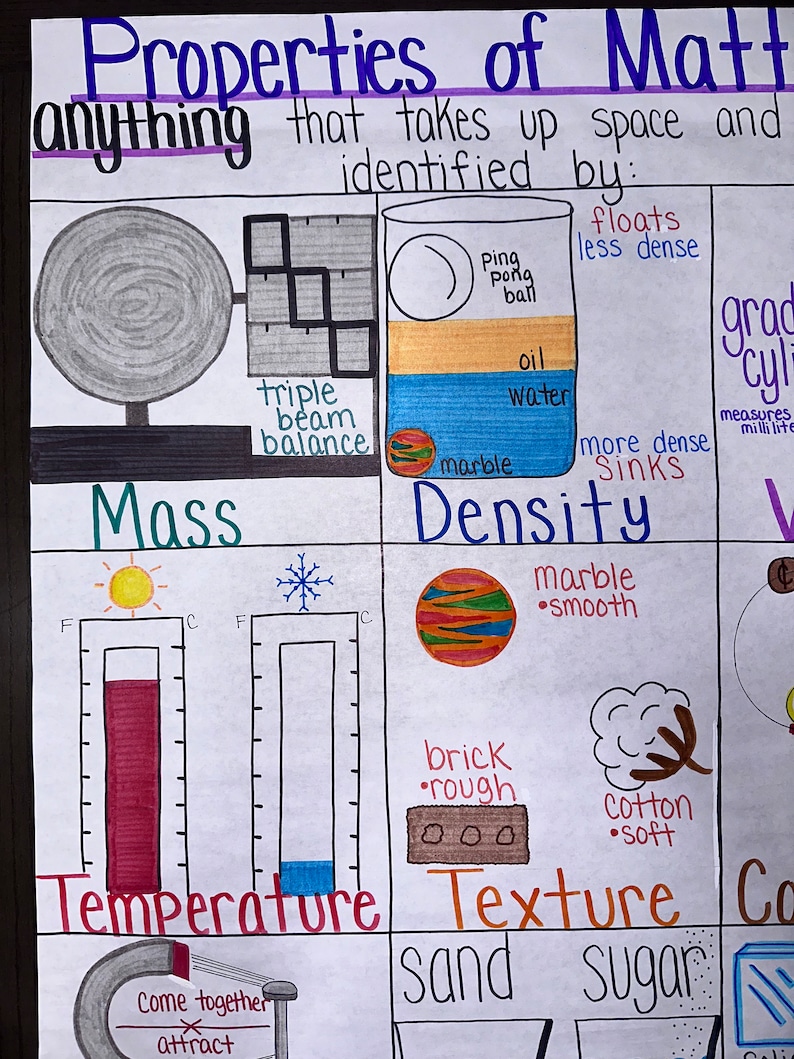 Properties of Matt
anything that takes up space and
identified by:
triple
beam
balance
Mass
ping
pong
ball
oil
water
marble
floats
less dense
more dense
sinks
Density
grad
cyli
measures
millilite
V
F C
F C
Temperature
marble
•smooth
brick
•rough
cotton
•soft
Texture
¢
Co
come together
attract
sand
sugar